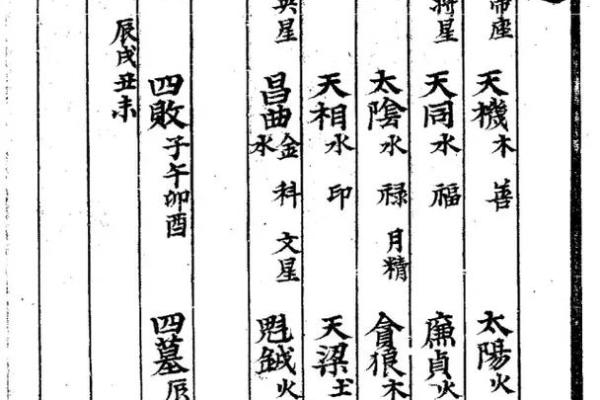 帝座 天機木 善 太陽火
將星 天同水 福 廉貞火
太陰水 禄 月精 貪狼木
天相水 印 天梁土
星 昌曲金水 科 文星 魁鉞火
四敗子午卯酉 四墓辰
辰戌丑未